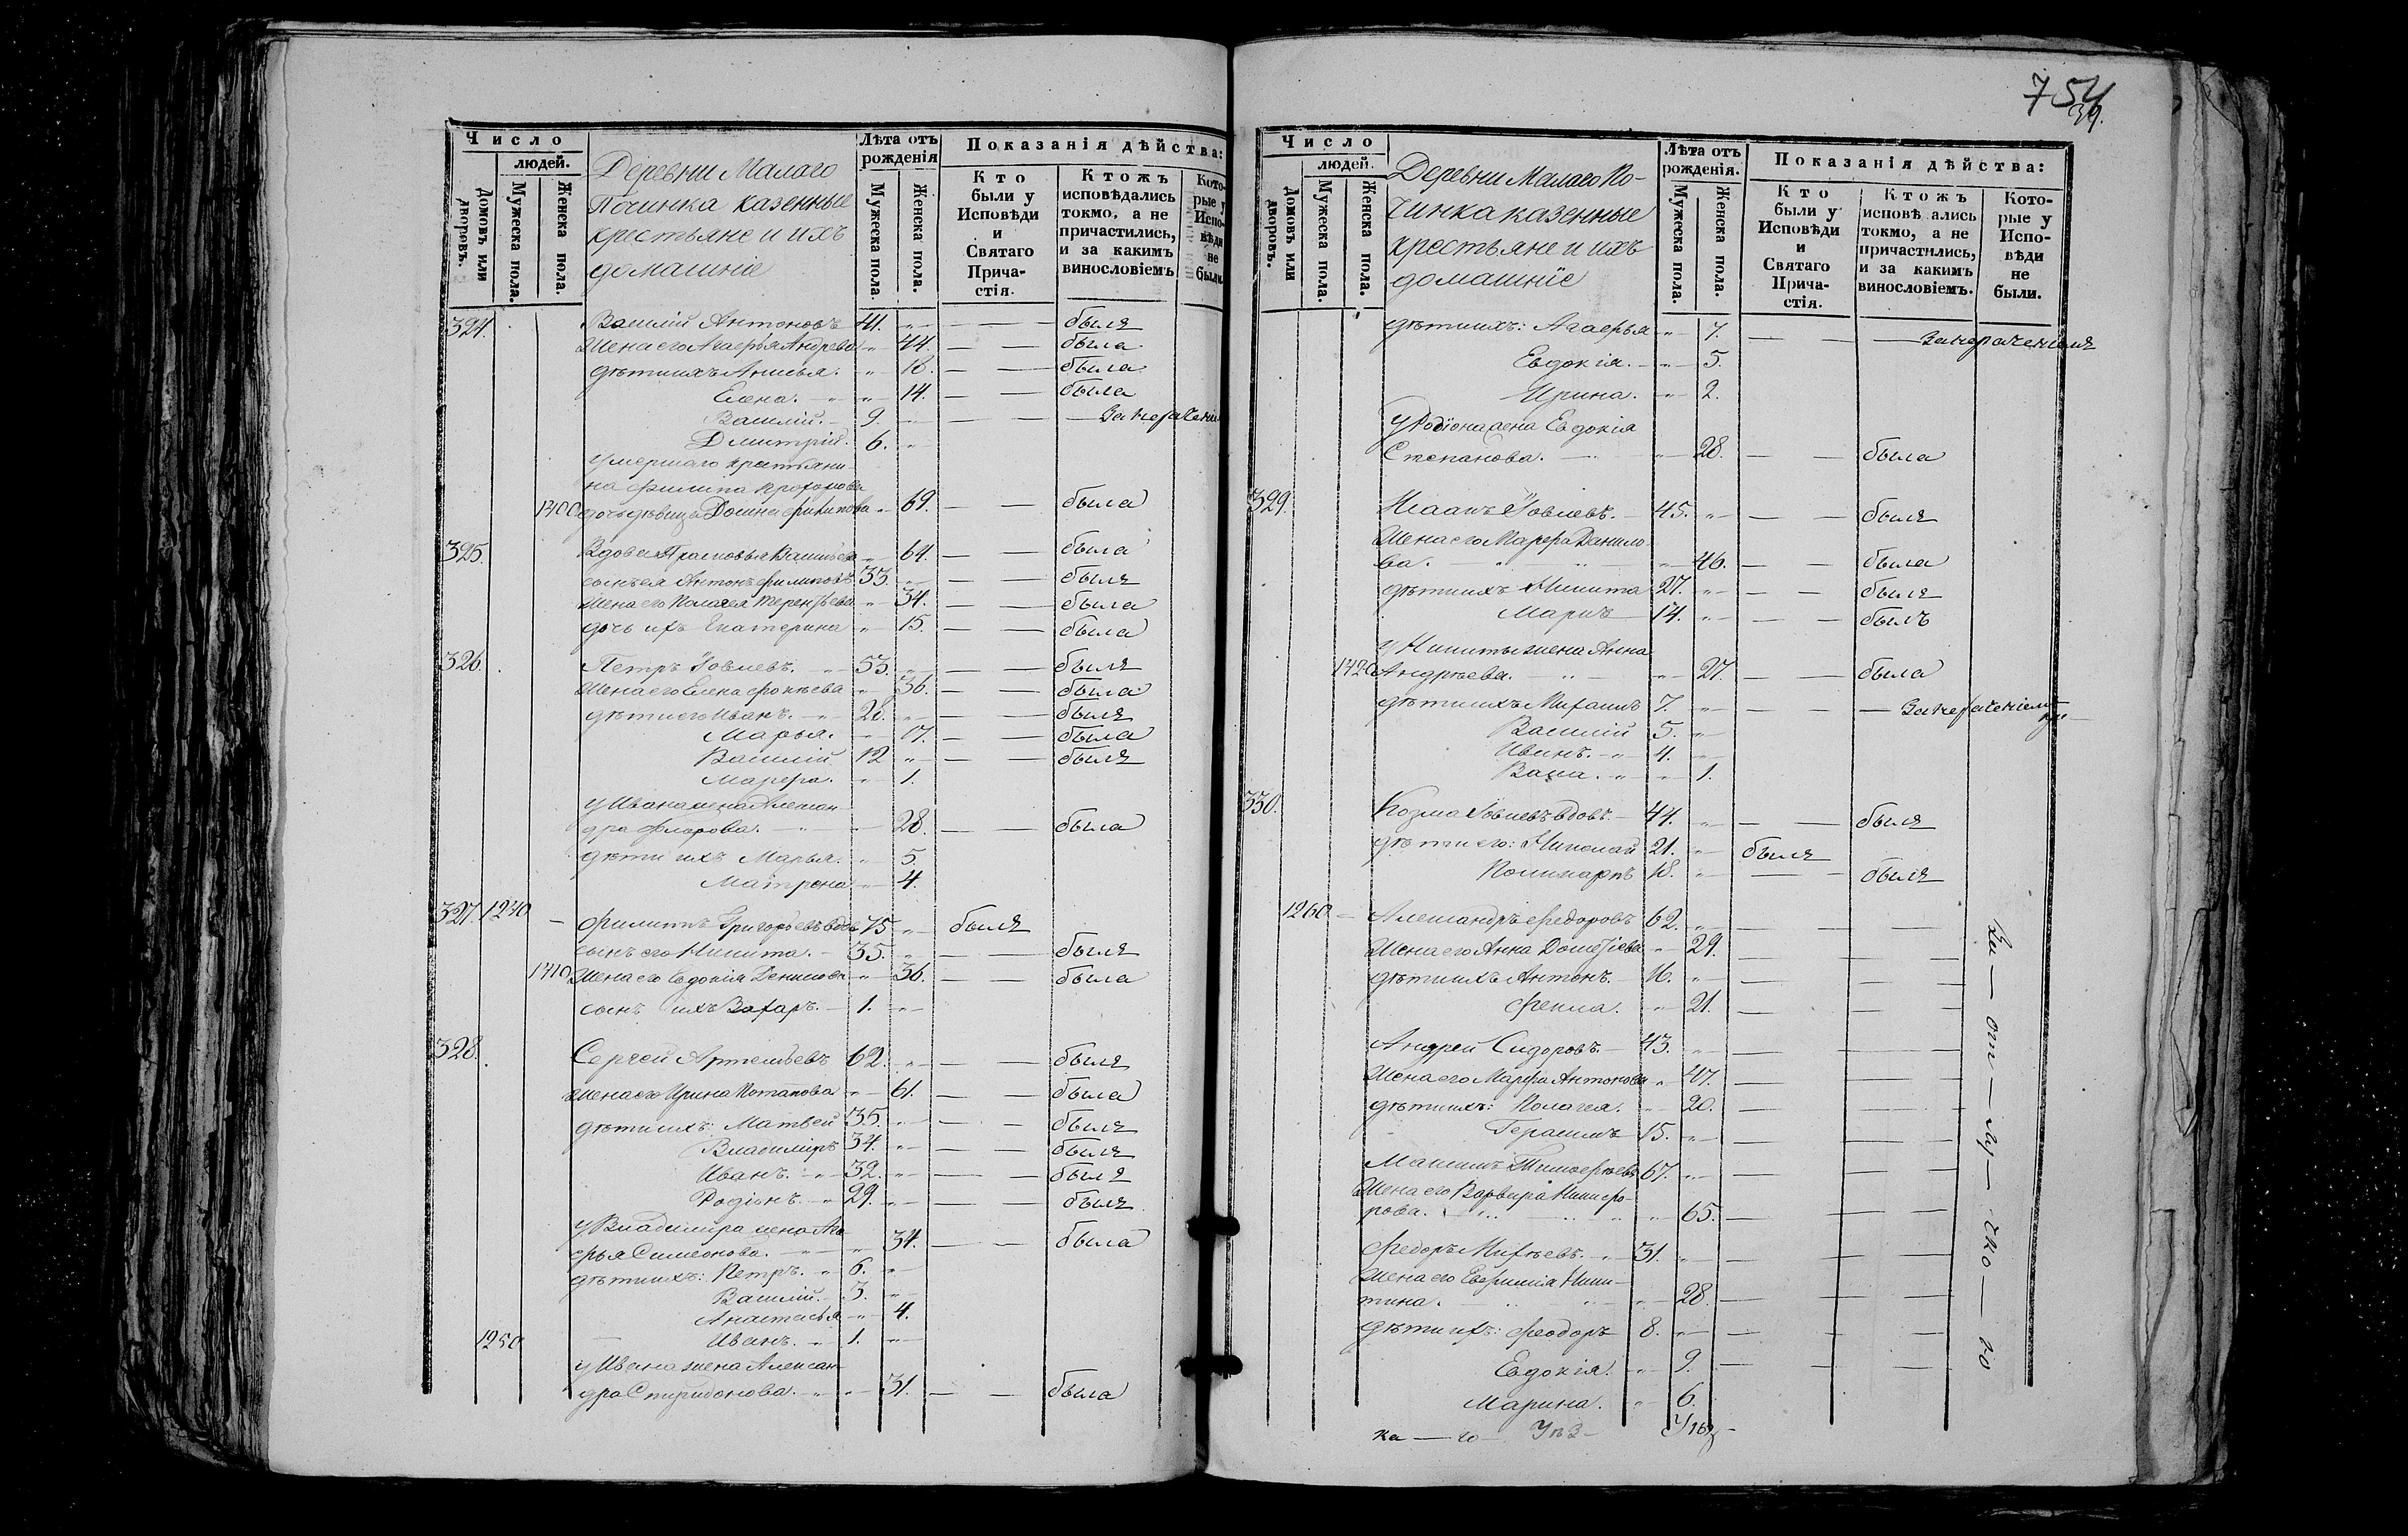 Число
людей.
Домовъ или дворовъ.
Мужеска пола.
Женска пола.
Деревни Малаго
Починка казенные
крестьяне и ихъ
домашніе
Лѣта отъ рожденія
Мужеска пола.
Женска пола.
Показанія дѣйства:
Кто были у Исповѣди и Святаго Прича-стія.
Ктожъ исповѣдались токмо, а не причастились, и за какимъ винословіемъ
Кото-рые у Испо-вѣди не были.
324. Василій Антоновъ 41. былъ
Жена его Агафья Андреева 44. была
дѣти ихъ Анисья. 18. была
Елена. 14. была
Василій. 9.
Дмитрій. 6.
умершаго крестьяни-
на Филипа
1400 дочь дѣвица Домна Филипова 69. была
325. Вдова Прасковья Васильева 64. была
сынъ ея Антонъ Филиповъ 33. былъ
Жена его Пелагея Терентьева 34. была
дочь ихъ Екатерина 15. была
326. Петръ Іовлевъ. 53. былъ
Жена его Елена Фокеева 36. была
дѣти его Иванъ. 28. былъ
Марья. 17. была
Василій 12 былъ
Марфа. 1.
у Ивана жена Алексан-
дра Флорова. 28. была
дѣти ихъ Марья. 5.
Матрена 4.
327. 1240 Филиппъ Григорьевъ вдов 75 былъ
сынъ его Никита. 35. былъ
1410 Жена его Евдокія Денисова 36. была
сынъ ихъ Захаръ. 1.
328. Сергей Артемьевъ 62. былъ
Жена его Ирина Потапова 61. была
дѣти ихъ: Матвей 35. былъ
Владиміръ 34. былъ
Иванъ. 32. былъ
Родіонъ. 29. былъ
у Владимира жена Ага-
фья Симеонова. 34. была
дѣти ихъ: Петръ. 6.
Василій. 3.
Анастасья 4.
1250 Иванъ. 1.
у Ивана жена Алексан-
дра Спиридонова. 31. была
754
39.
Число
людей.
Домовъ или дворовъ.
Мужеска пола.
Женска пола.
Деревни Малаго По-
чинка казенные
крестьяне и ихъ
домашніе
Лѣта отъ рожденія.
Мужеска пола.
Женска пола.
Показанія дѣйства:
Кто были у Исповѣди и Святаго Прича-стія.
Ктожъ исповѣ ались токмо, а не причастились, и за какимъ винословіемъ.
Кото-рые у Испо-вѣди не были.
дѣти ихъ: Агафья 7.
Евдокія. 5.
Ирина. 2.
у Родіона жена Евдокія
Степанова. 28. была
329. Іовлевъ. 45. былъ
Жена его Марфа Данило-
ва. 46. была
дѣти ихъ Никита 27. былъ
14. былъ
у Никиты жена Анна
1420 Андреева. 27. была
дѣти ихъ Михаилъ 7.
Василій 5.
Иванъ. 4.
1.
330. Козма Іовлевъ вдовъ. 44. былъ
дѣти его: Николай 21. былъ
Поликарпъ 18. былъ
1260 Александръ Федоровъ 62.
Жена его Анна 29.
дѣти ихъ Антонъ. 16.
Фекла. 21.
Андрей Сидоровъ. 43.
Жена его Марфа Антонова 47.
дѣти ихъ: Пелагея. 20.
Герасимъ 15.
Максимъ Тимофеевъ 67.
Жена его Варвара Никифо-
рова. 65.
Федоръ Михеевъ. 31.
Жена его Евфимія Ники-
тина. 28.
дѣти ихъ: Феодоръ 8.
Евдокія. 9.
Марина. 6.